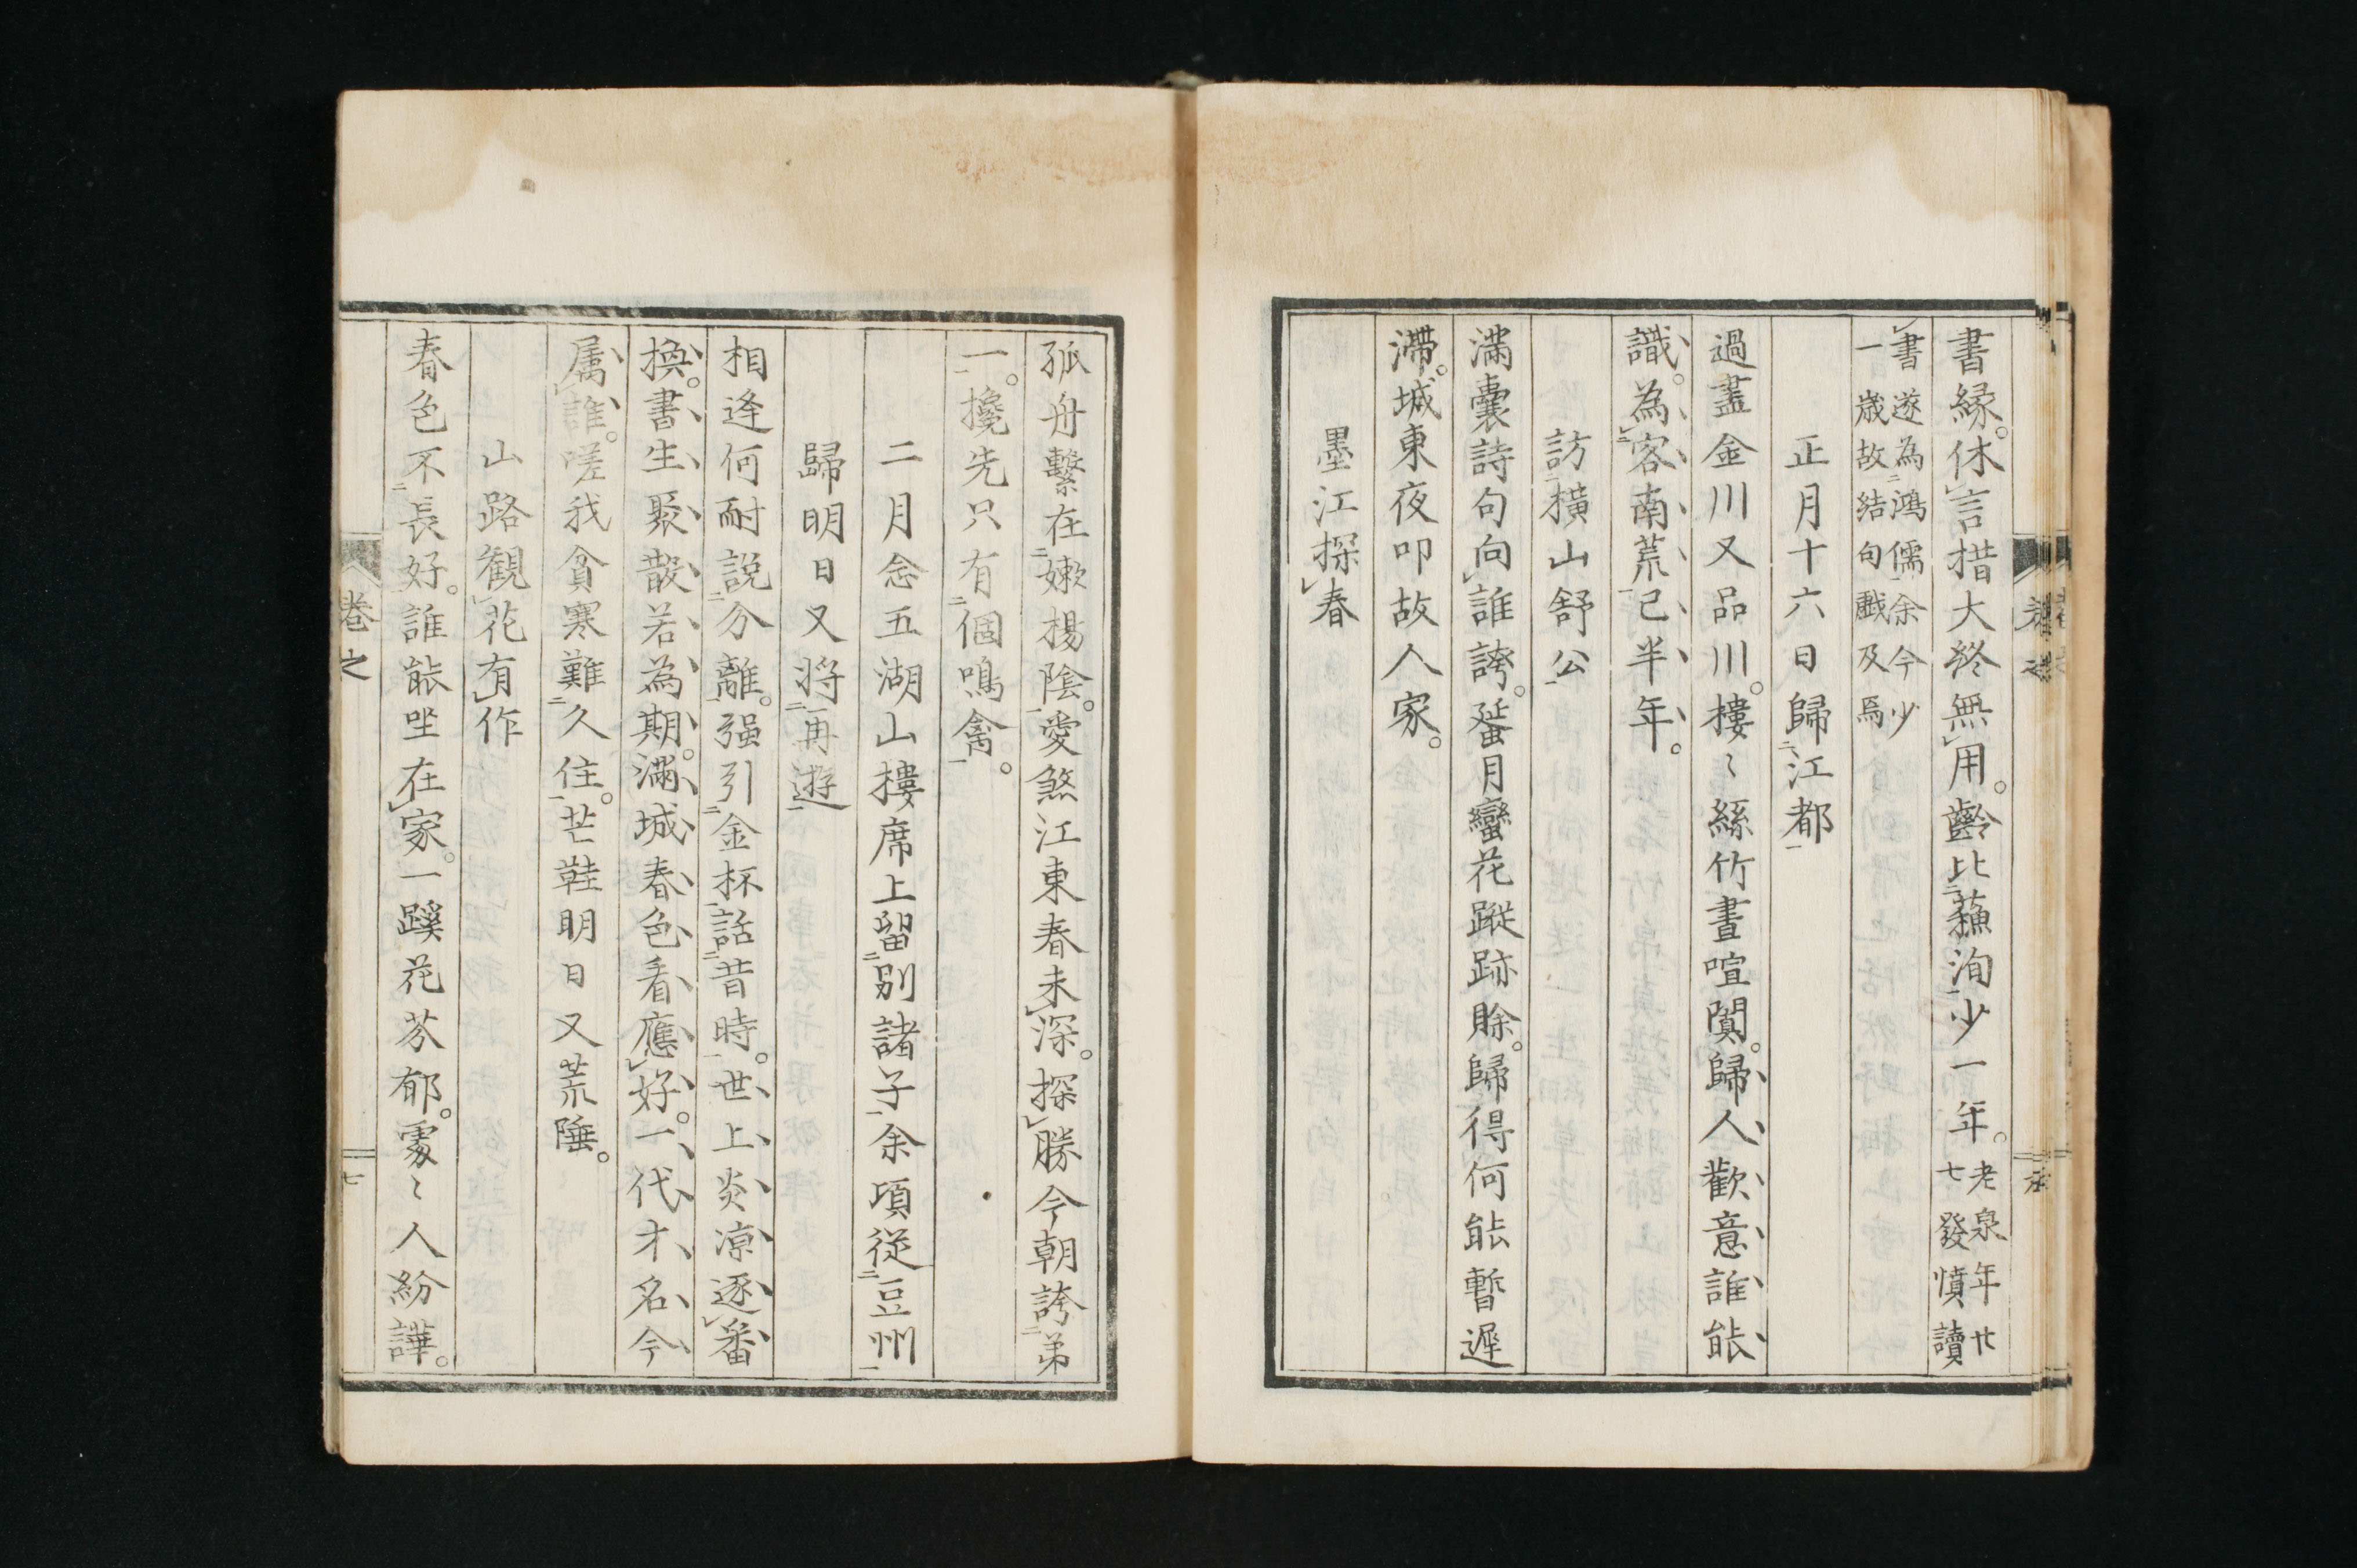 書縁。休言措大終無用。齡比蘓洵少一年。老泉年廿
七發憤讀
書遂為鴻儒余今少
一歳故結句戲及焉
正月十六日歸江都
過盡金川又品川。樓〻絲竹晝喧闐。歸人歡意誰能
識。為客南荒已半年。
訪橫山舒公
滿囊詩句向誰誇。蜑月蠻花蹤跡賒。歸得何能暫遲
滯。城東夜叩故人家。
墨江探春
孤舟繫在嫩楊陰。愛煞江東春未深。探勝今朝誇弟
一。攙先只有個鳴禽。
二月念五湖山樓席上留別諸子余項從豆州
歸明日又將再遊
相逢何耐説分離。强引金杯話昔時。世上炎凉逐番
換。書生聚散若為期。滿城春色看應好。一代才名今
属誰。嗟我貧寒難久住。芒鞋明日又荒陲。
山路観花有作
春色不長好。誰能坐在家。一蹊花芬郁。處〻人紛譁。
卷之
七